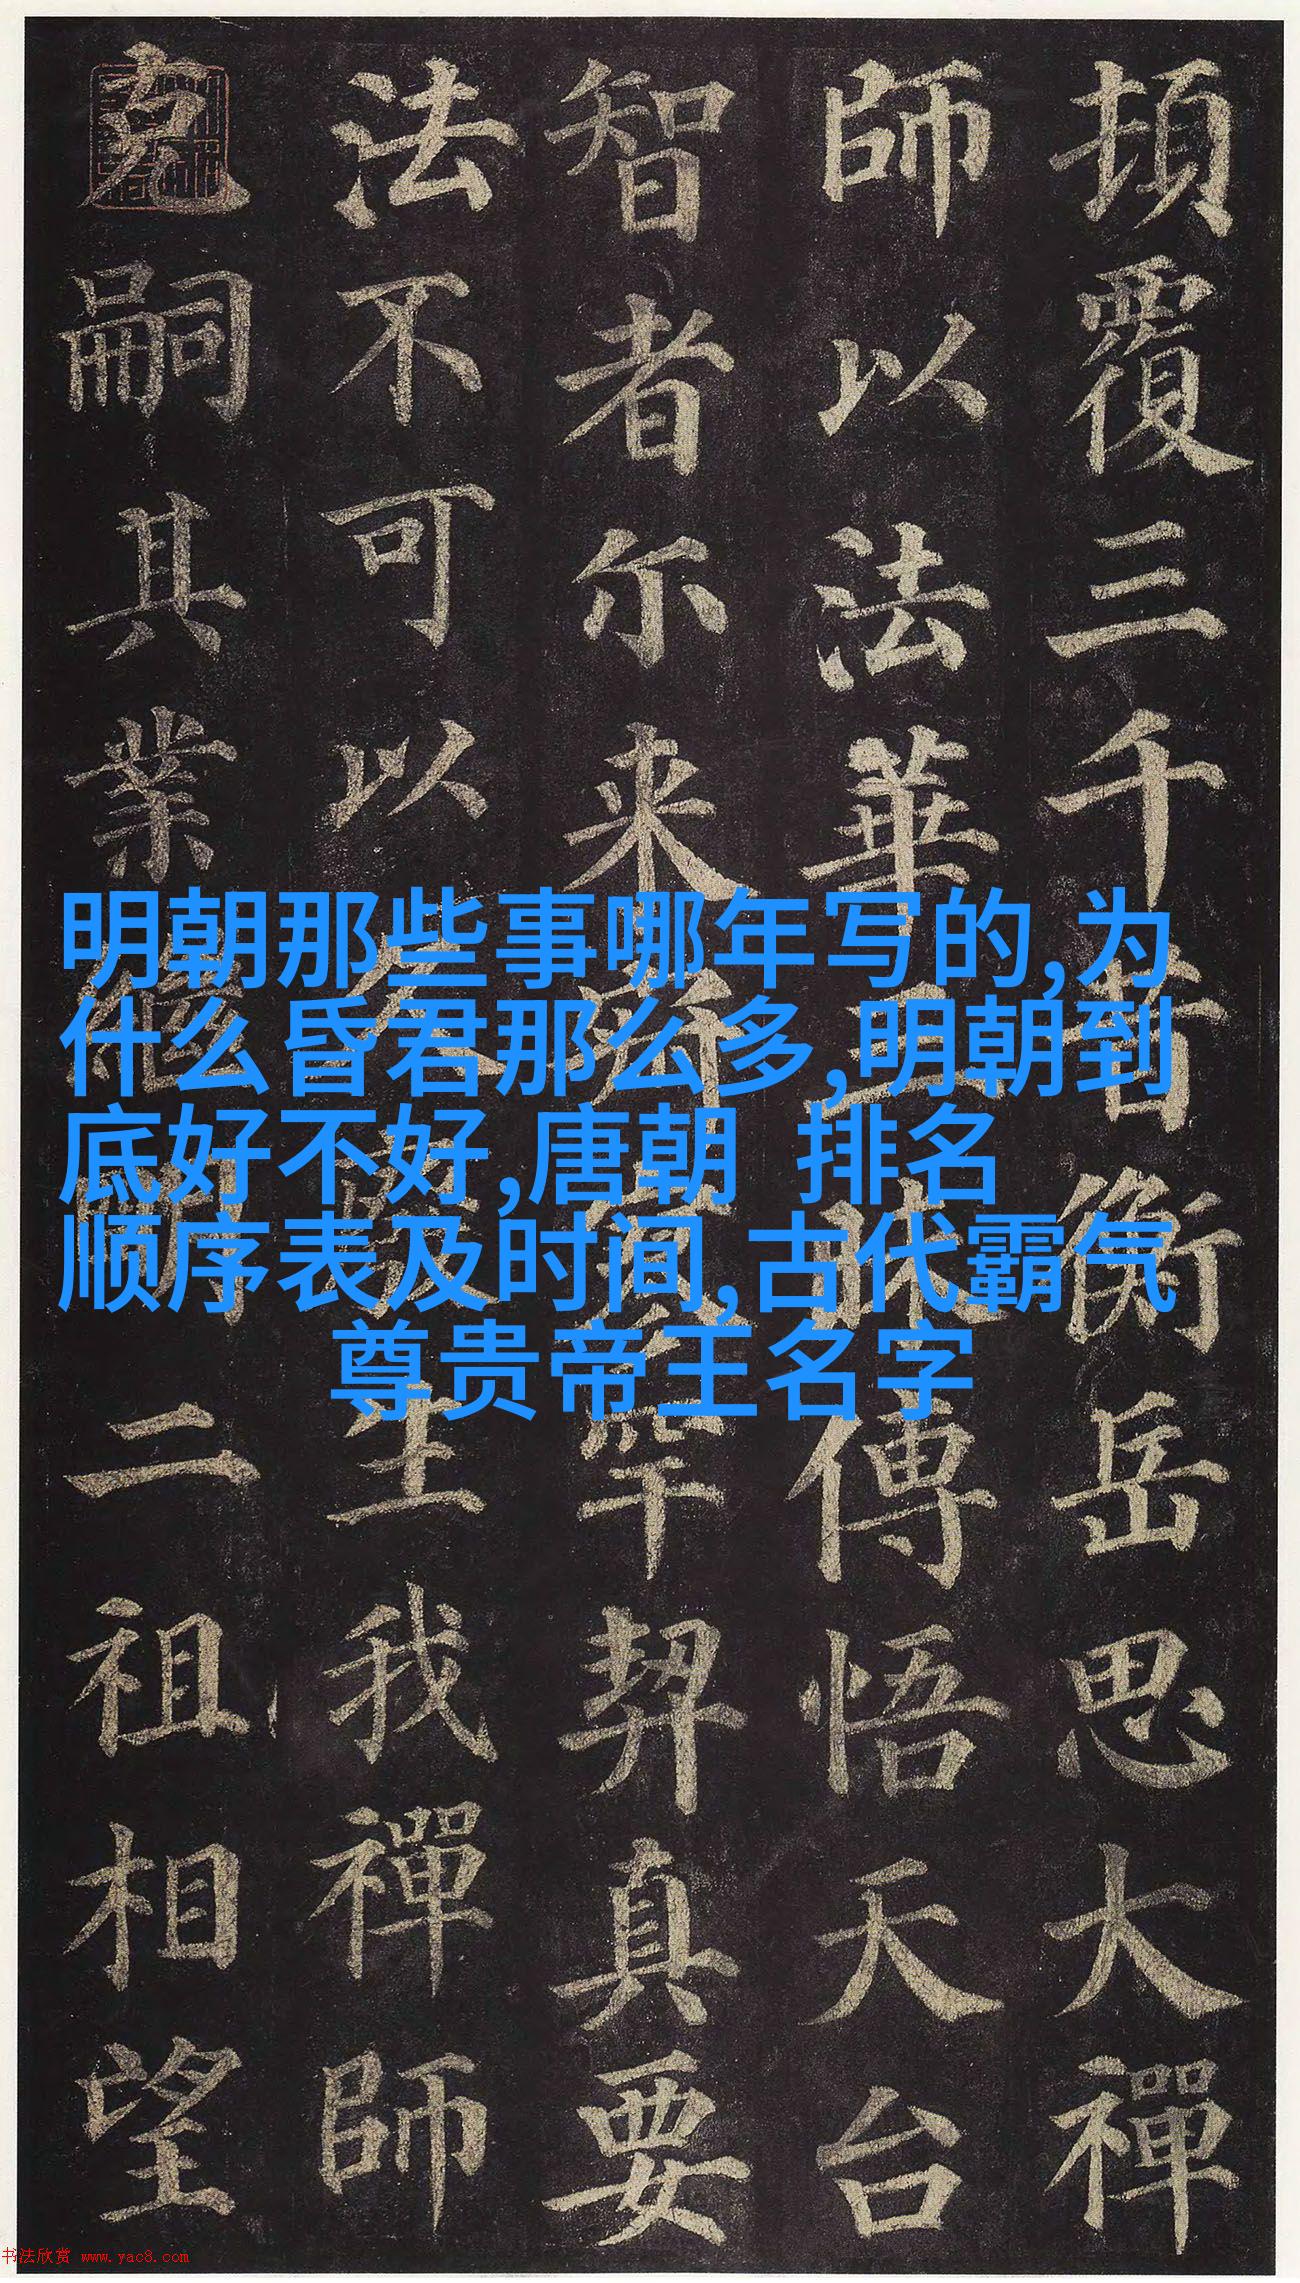 頂覆三千昔衡岳思大禪
師以法華三昧傳悟天台
智者尓来寂寥罕契真要
法不可以久廢生我禪師
克嗣其業継明二祖相望
明朝那些事哪年写的,为
什么昏君那么多,明朝到
底好不好,唐朝 排名
顺序表及时间,古代霸气
尊贵帝王名字
书法欣赏 www.yac8.com